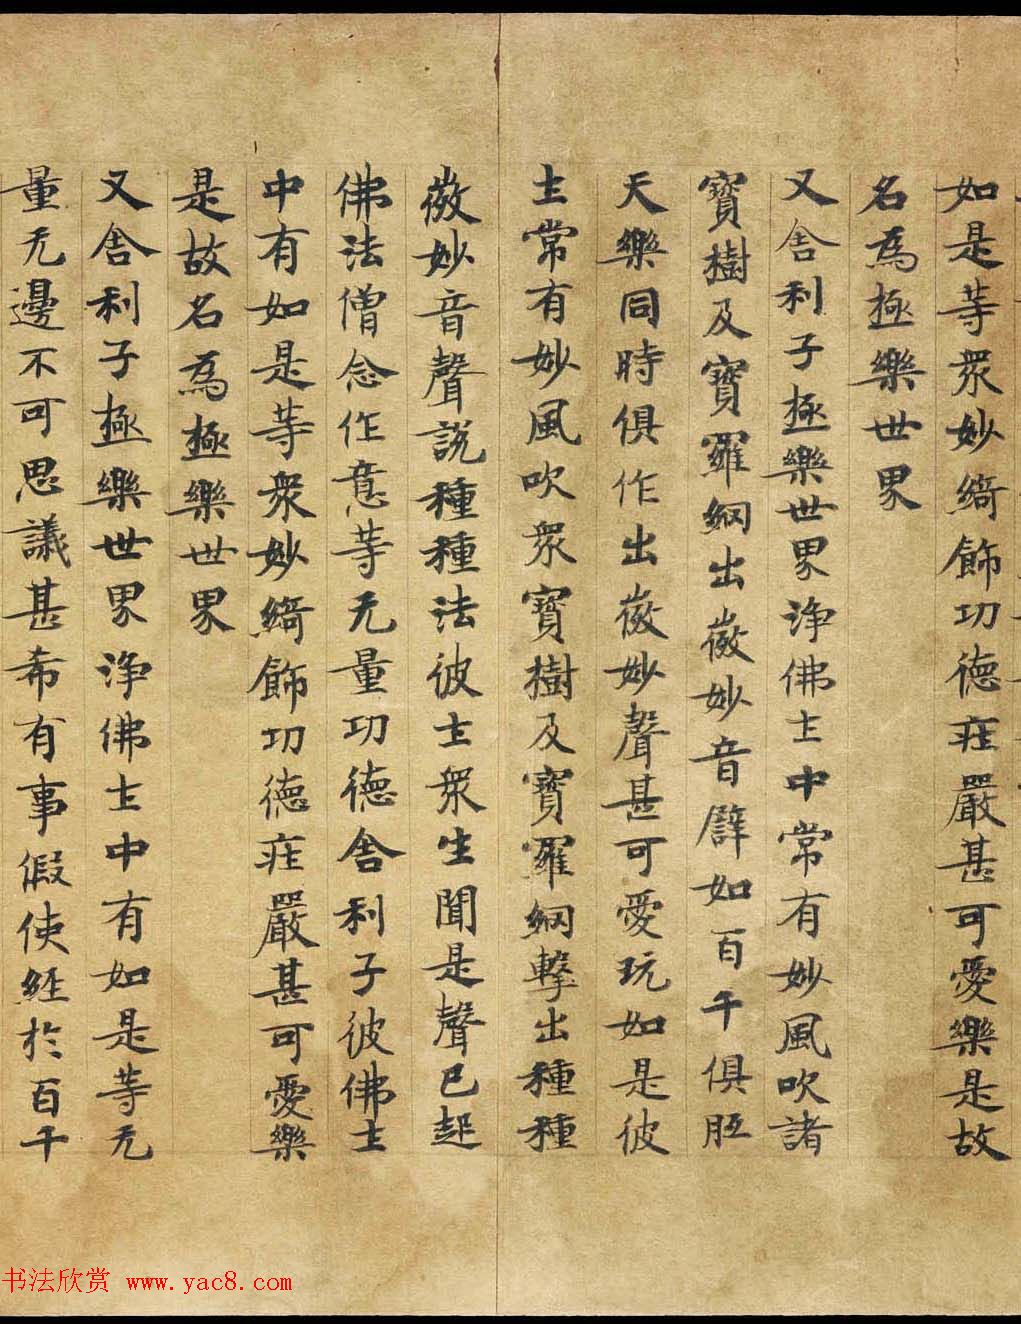 如是等眾妙綺飾功德莊嚴甚可愛樂是故
名為極樂世界
又舍利子極樂世界淨佛土中常有妙風吹諸
寶樹及寶羅網出微妙音譬如百千俱胝
天樂同時俱作出微妙聲甚可愛玩如是彼
土常有妙風吹眾寶樹及寶羅網擊出種種
微妙音聲說種種法彼土眾生聞是聲已起
佛法僧念作意等无量功德舍利子彼佛土
中有如是等眾妙綺飾功德莊嚴甚可愛樂
是故名為極樂世界
又舍利子極樂世界淨佛土中有如是等无
量无邊不可思議甚希有事假使經於百千
书法欣赏 www.yac8.com